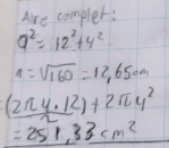 Aire complet:
a² = 12² + 4²
a = √160 = 12,65 cm
= (2π4·12)/2 + 2π4²
= 251,33 cm²